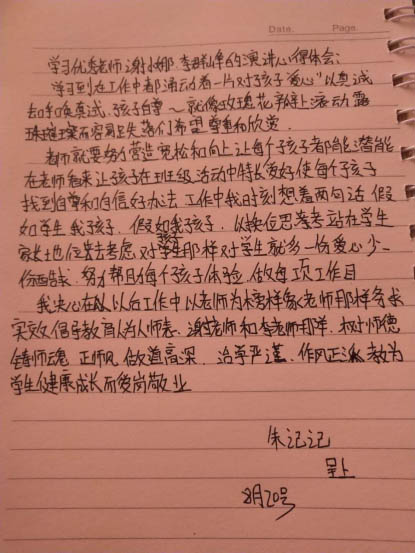 Date. Page.
学习优秀老师谢娜、李 的演讲心得体会:
学习到在工作中都涌动着一片对孩子“爱心”以真诚
去唤真诚、孩子自尊～就像玫瑰花瓣上滚动露
珠璀璨而容易失落们希望尊重和欣赏.
老师就要努力营造宽松和向上让每个孩子都能潜能
在老师看来让孩子在班级活动中特长爱好使每个孩子
找到自尊和自信好办法 工作中我时刻想着两句话 假
如学生我孩子, 假如我孩子, 以换位思考站在学生
家长地位去考虑 对 学生那样对学生就多一份爱心少一
份 告诫. 努力帮助每个孩子体验. 做每项工作目
我决心在以后工作中以老师为榜样象老师那样务求
实效 倡导教育人为人师表、谢老师和李老师那样. 树师德
铸师魂 正师风 做道高深. 治学严谨. 作风正派 教为
学生健康成长而爱岗敬业
朱记记
呈上
8月20号